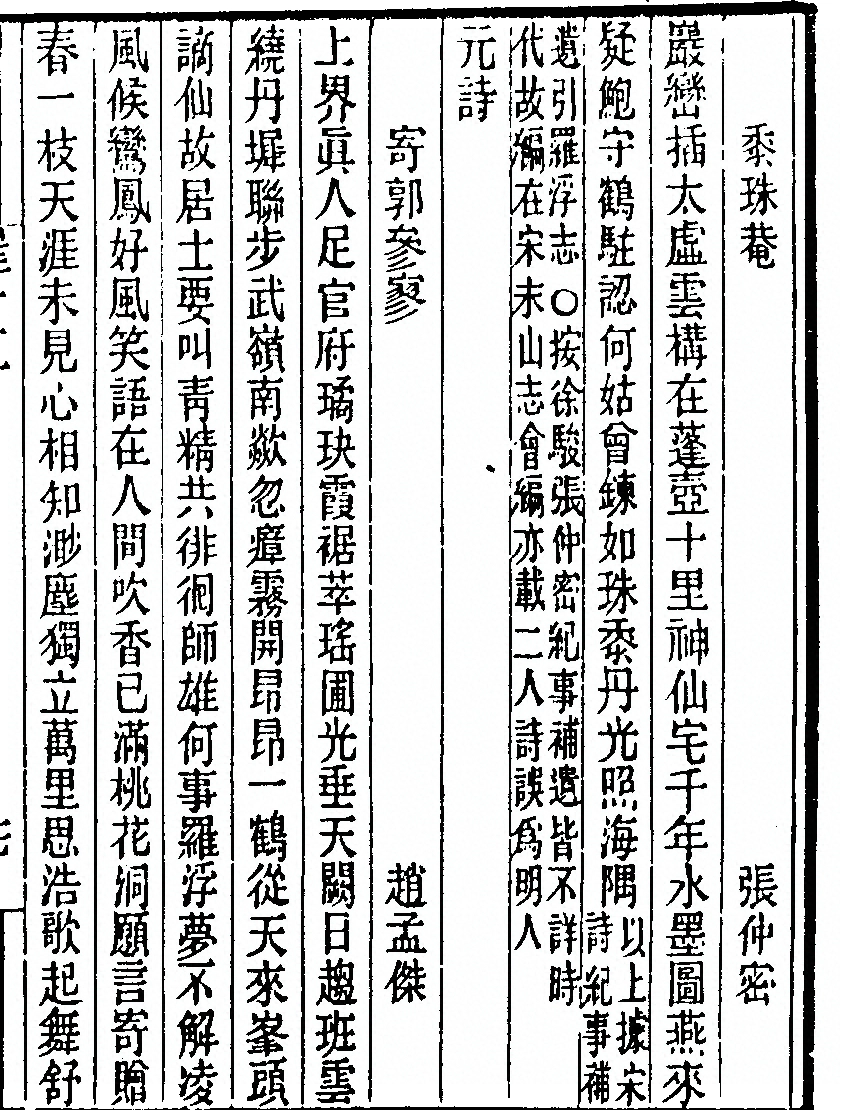 黍珠菴　張仲密
巖巒插太虛雲構在蓬壺十里神仙宅千年水墨圖燕來
疑鮑守鶴駐認何姑曾鍊如珠黍丹光照海隅以上據宋
詩紀事補
遺引羅浮志○按徐駿張仲密紀事補遺皆不詳時
代故編在宋末山志會編亦載二人詩誤爲明人
元詩
寄郭參寥　趙孟傑
上界眞人足官府璚玦霞裾萃瑤圃光垂天闕日趨班雲
繞丹墀聯步武嶺南歘忽瘴霧開昂昂一鶴從天來峯頭
謫仙故居士要叫靑精共徘徊師雄何事羅浮夢不解凌
風候鸞鳳好風笑語在人間吹香已滿桃花洞願言寄贈
春一枝天涯未見心相知渺塵獨立萬里思浩歌起舞舒